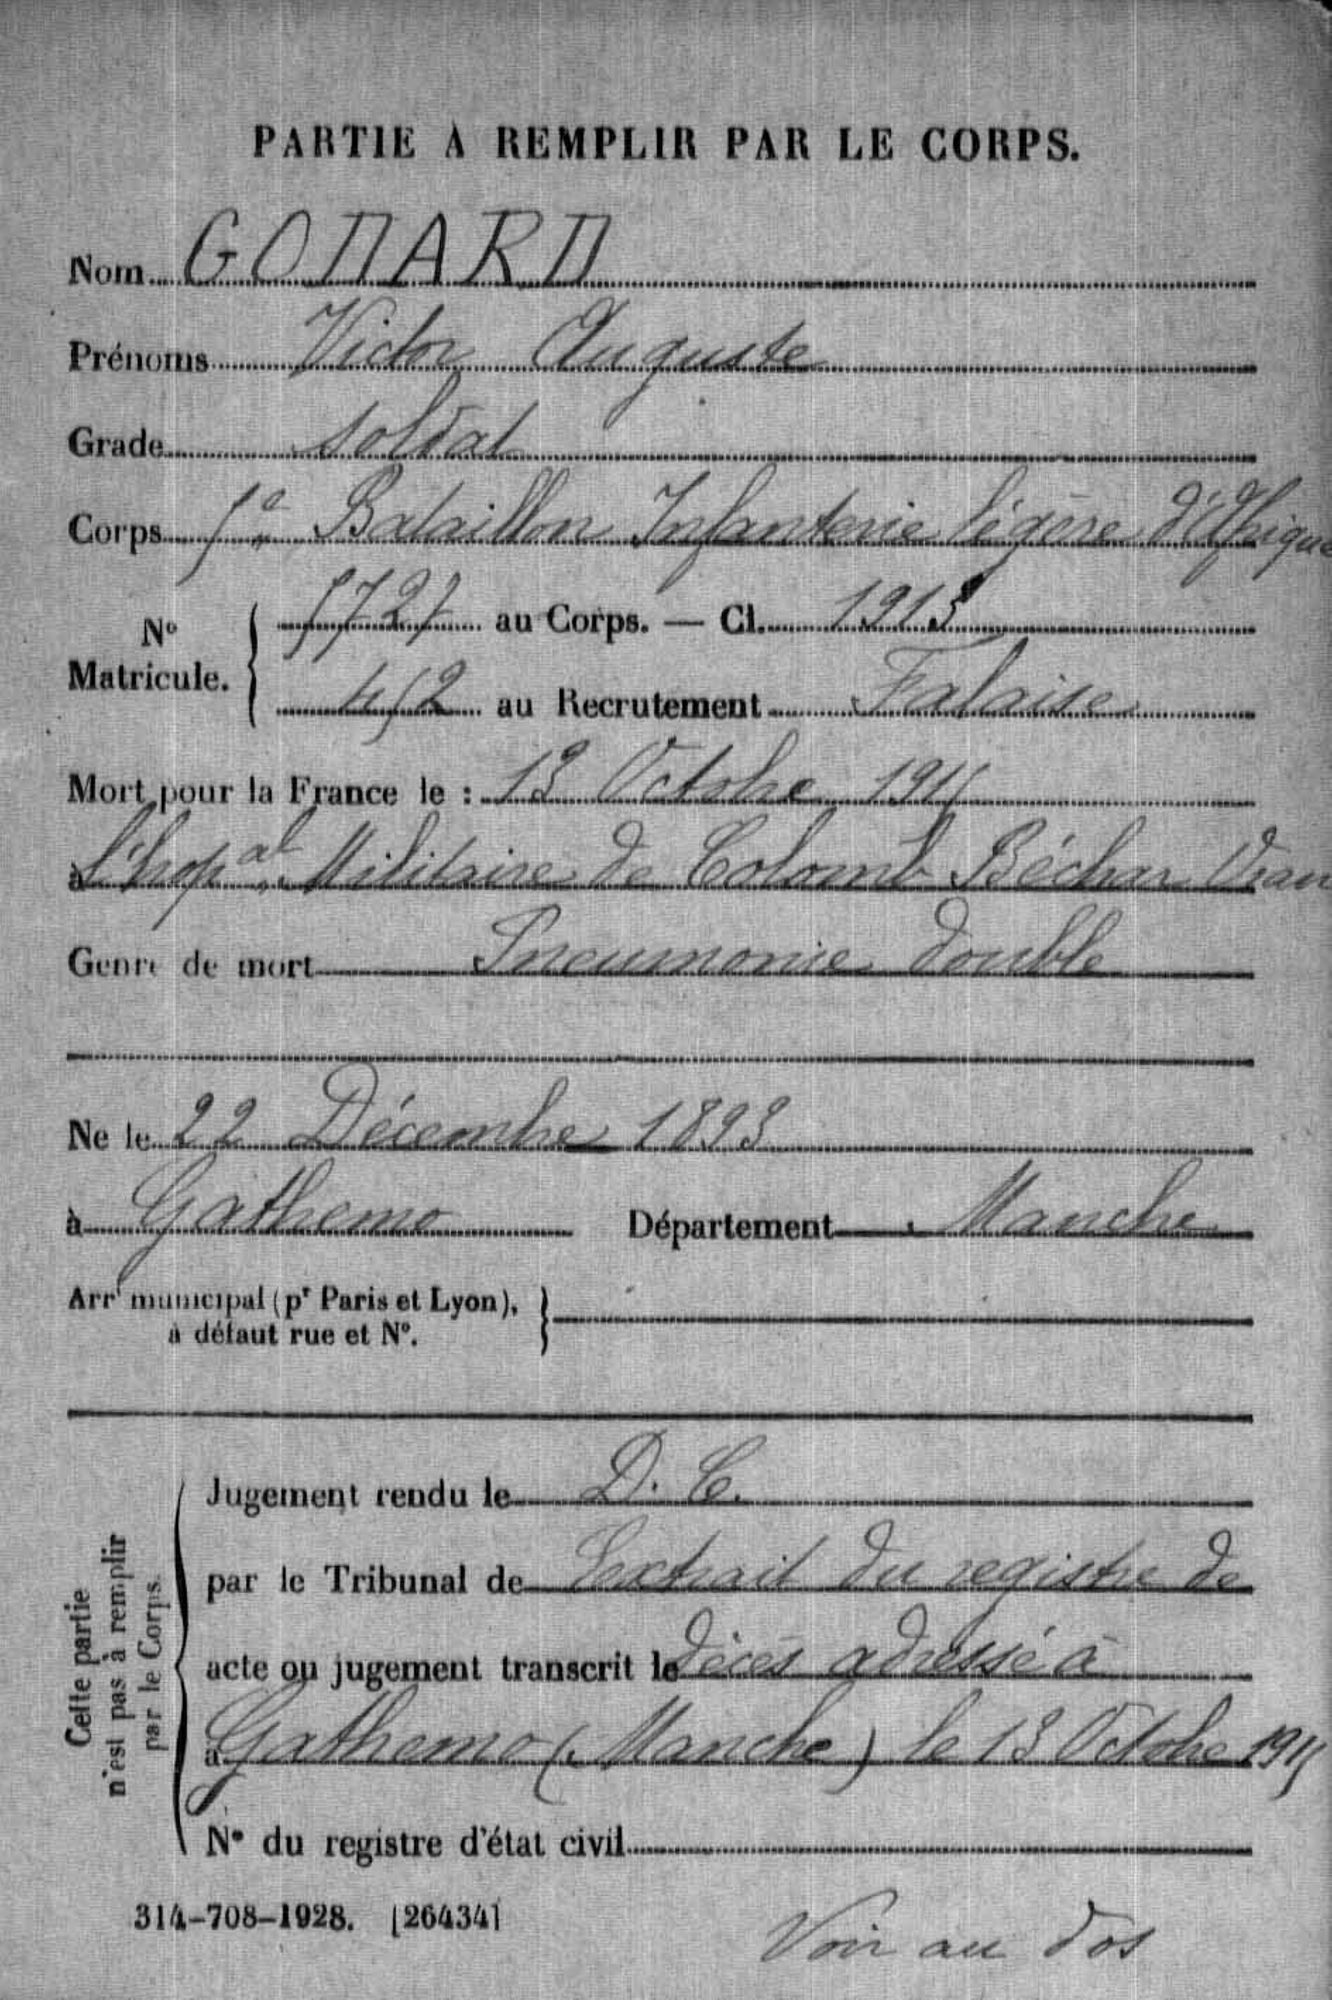 PARTIE À REMPLIR PAR LE CORPS.
Nom GODARD
Prénoms Victor Auguste
Grade soldat
Corps 5e Bataillon Infanterie légère d'Afrique
No Matricule. { 5727 au Corps. — Cl. 1913
452 au Recrutement Falaise
Mort pour la France le : 13 Octobre 1915
à l'hopal Militaire de Colomb Béchar Oran
Genre de mort Pneumonie double
Né le 22 Décembre 1893
à Gathemo Département Manche
Arrt municipal (pr Paris et Lyon),
à défaut rue et No.
Cette partie
n'est pas à remplir
par le Corps.
Jugement rendu le D. C.
par le Tribunal de Extrait du registre de
acte ou jugement transcrit le décès adressé à
à Gathemo (Manche) le 13 Octobre 1915
No du registre d'état civil
314-708-1928. [26434]
Voir au dos